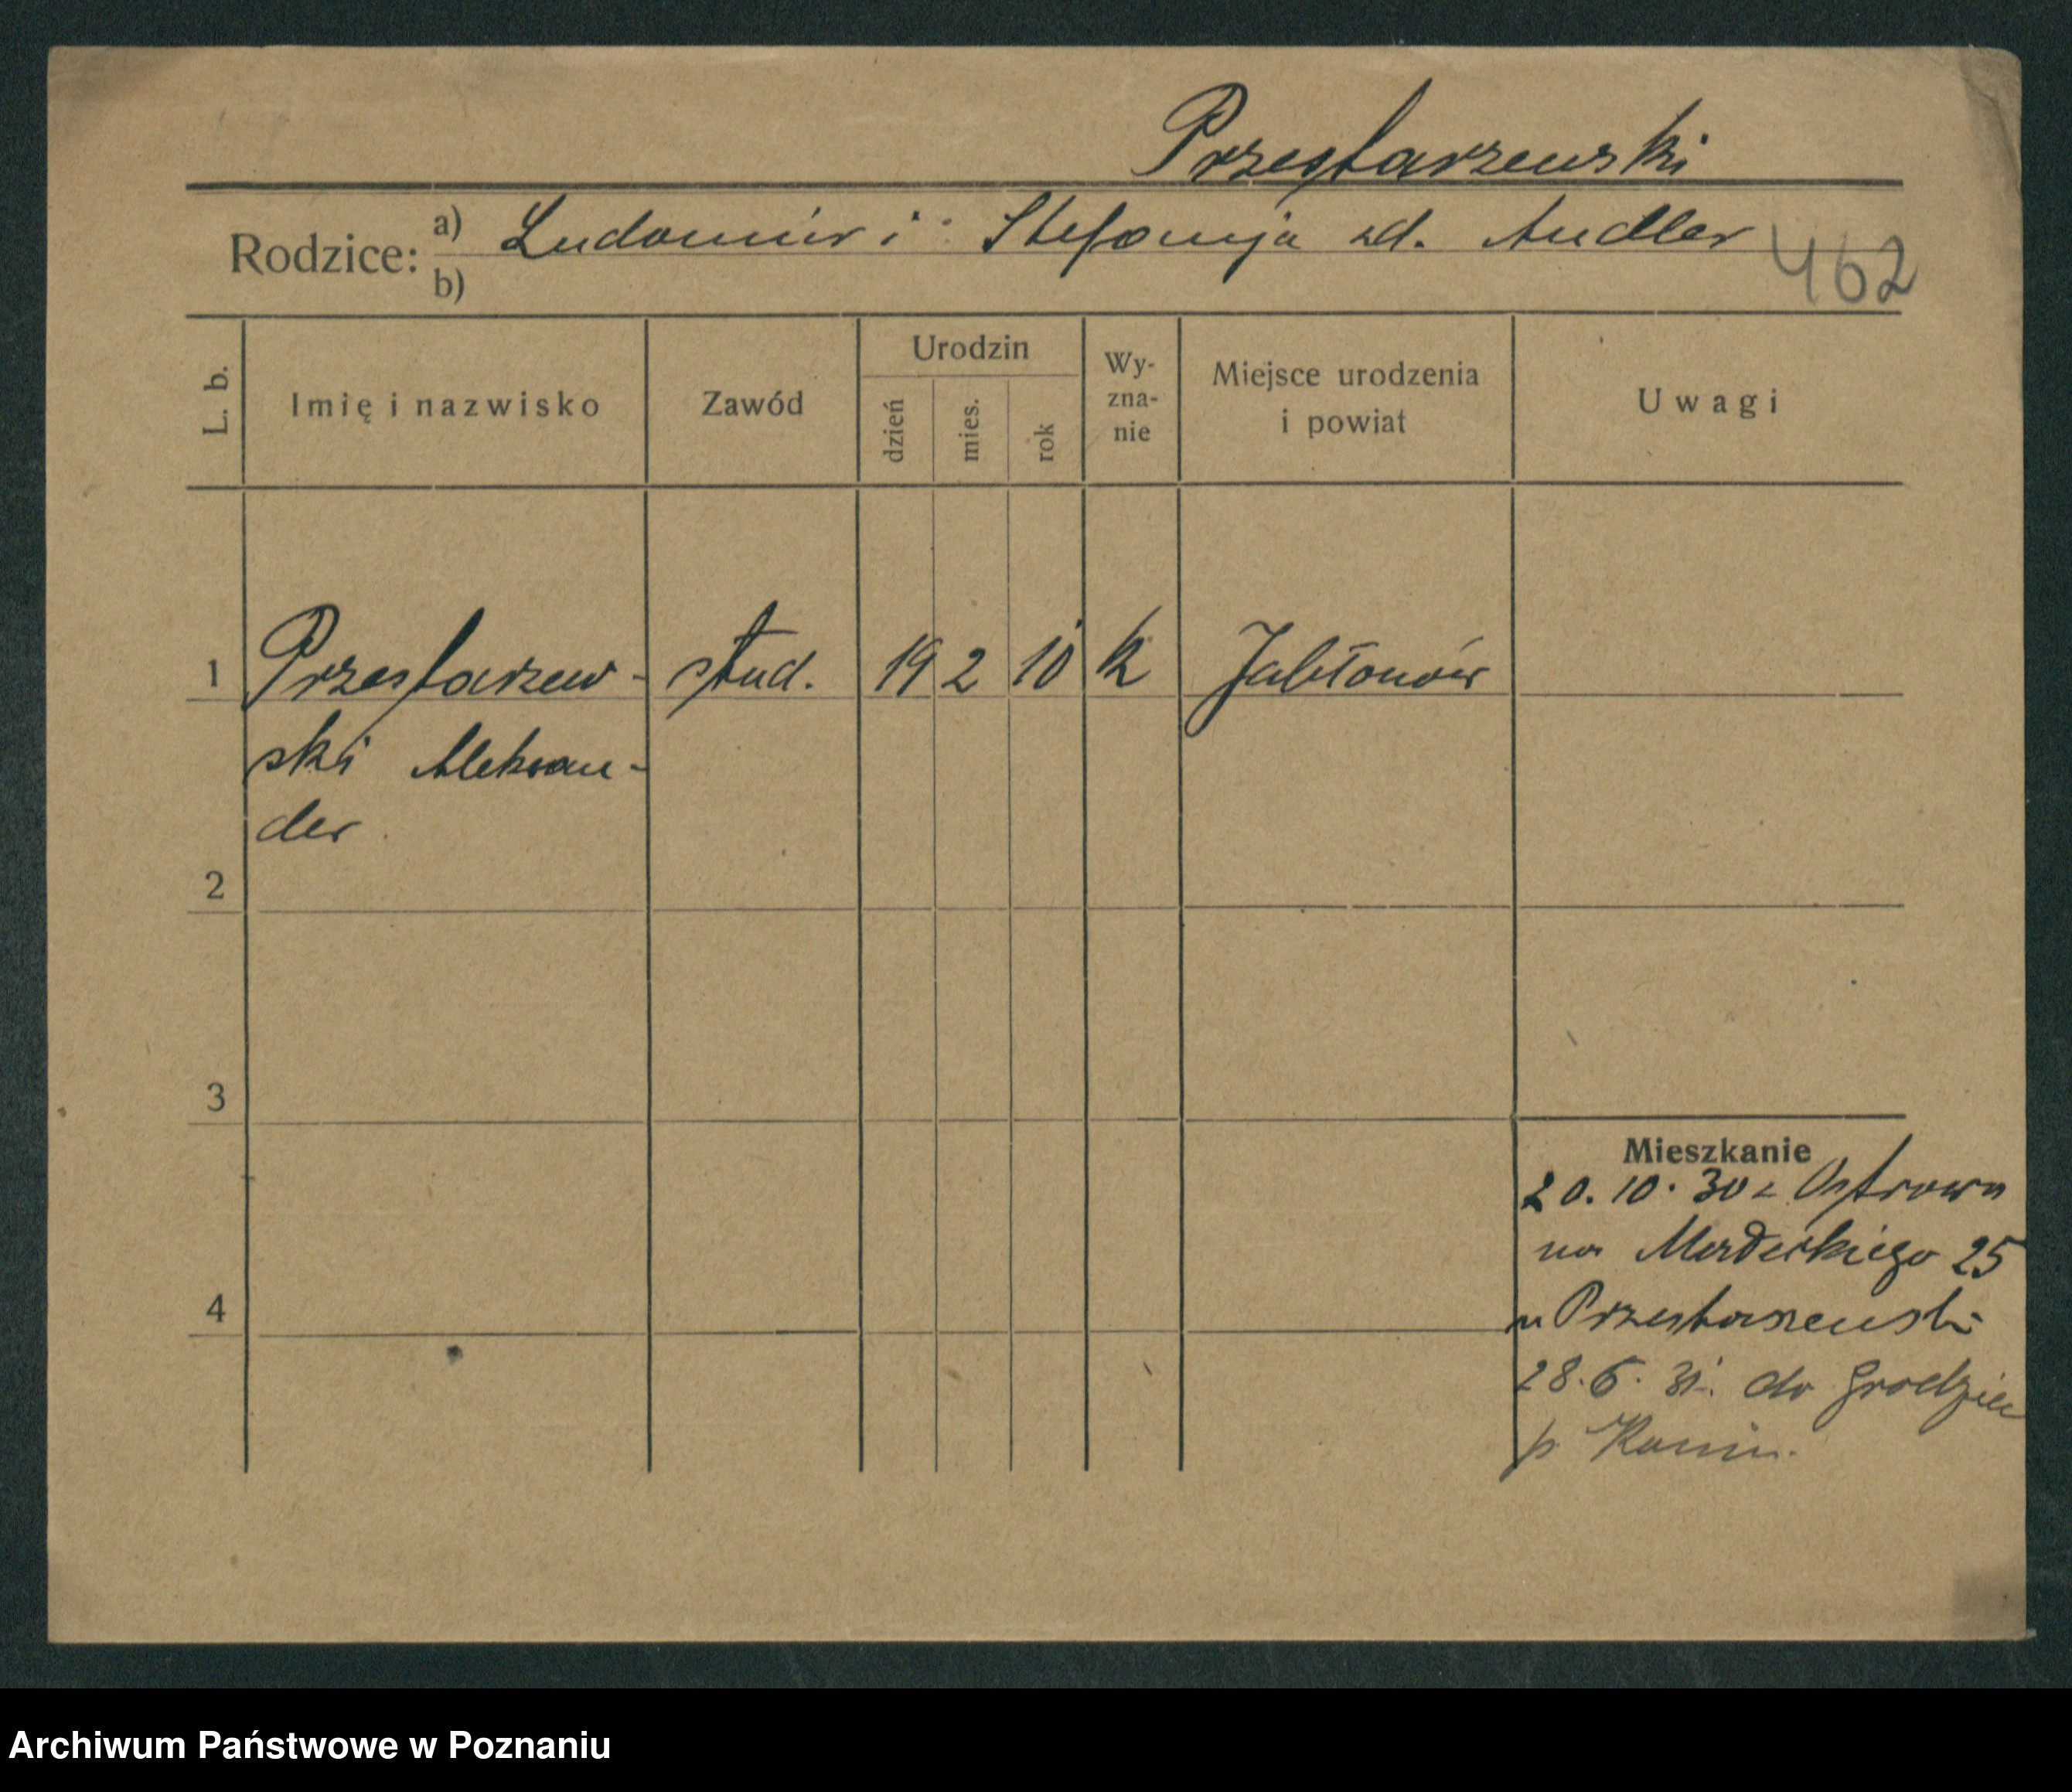 Przestarzewski
Rodzice: a) Ludomir i Stefanja zd. Andler
b)
462
L. b.
Imię i nazwisko
Zawód
Urodzin
dzień
mies.
rok
Wy-
zna-
nie
Miejsce urodzenia
i powiat
Uwagi
1 Przestarzew- stud. 19 2 10 k Jabłonów
ski Aleksan-
der
2
3
4
Mieszkanie
20.10.30 z Ostrowa
na 25
u Przestarzewski
28.6.31. do Grodziec
p Konin.
Archiwum Państwowe w Poznaniu